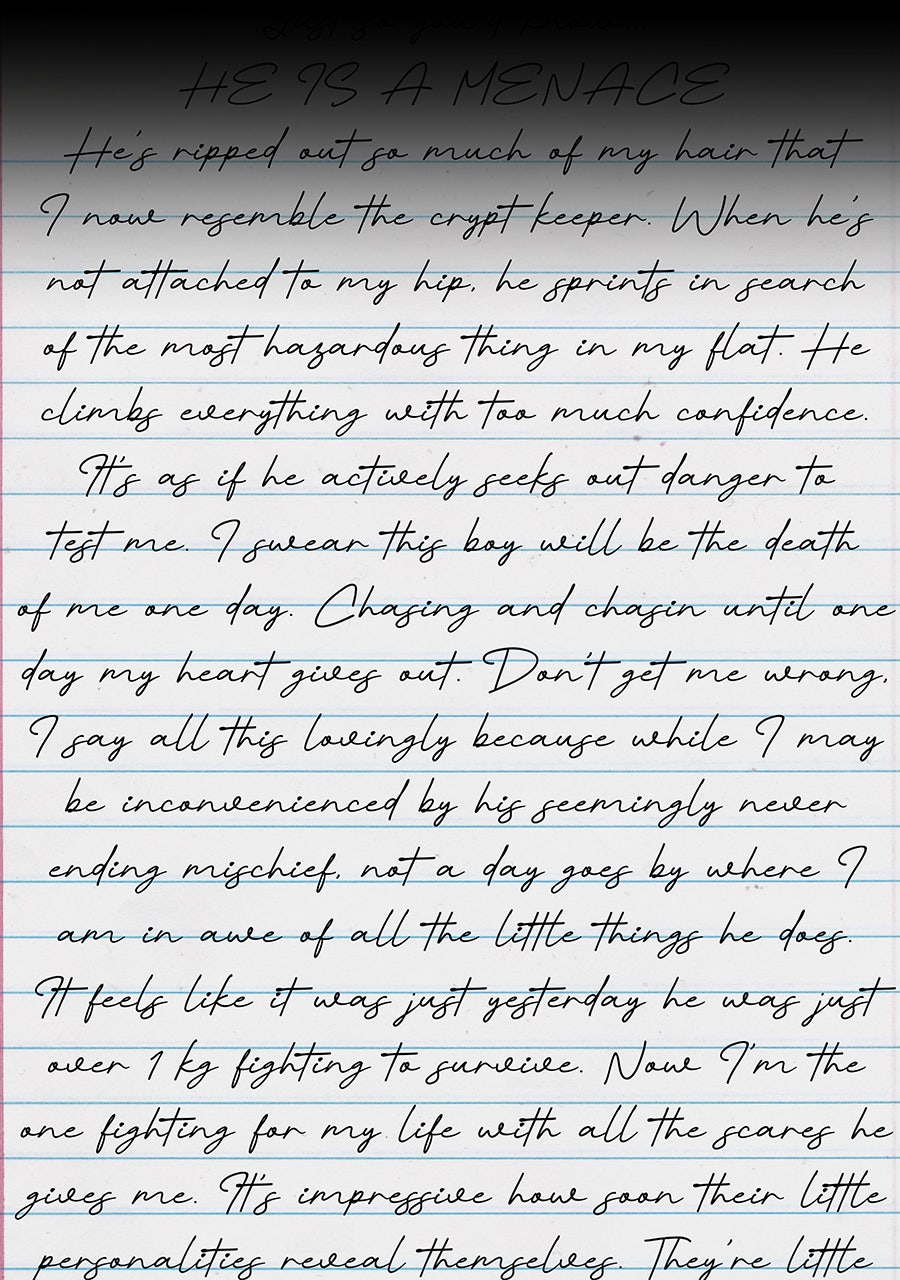 Just so you know...
HE IS A MENACE
He's ripped out so much of my hair that
I now resemble the crypt keeper. When he's
not attached to my hip, he sprints in search
of the most hazardous thing in my flat. He
climbs everything with too much confidence.
It's as if he actively seeks out danger to
test me. I swear this boy will be the death
of me one day. Chasing and chasin until one
day my heart gives out. Don't get me wrong,
I say all this lovingly because while I may
be inconvenienced by his seemingly never
ending mischief, not a day goes by where I
am in awe of all the little things he does.
It feels like it was just yesterday he was just
over 1 kg fighting to survive. Now I'm the
one fighting for my life with all the scares he
gives me. It's impressive how soon their little
personalities reveal themselves. They're little